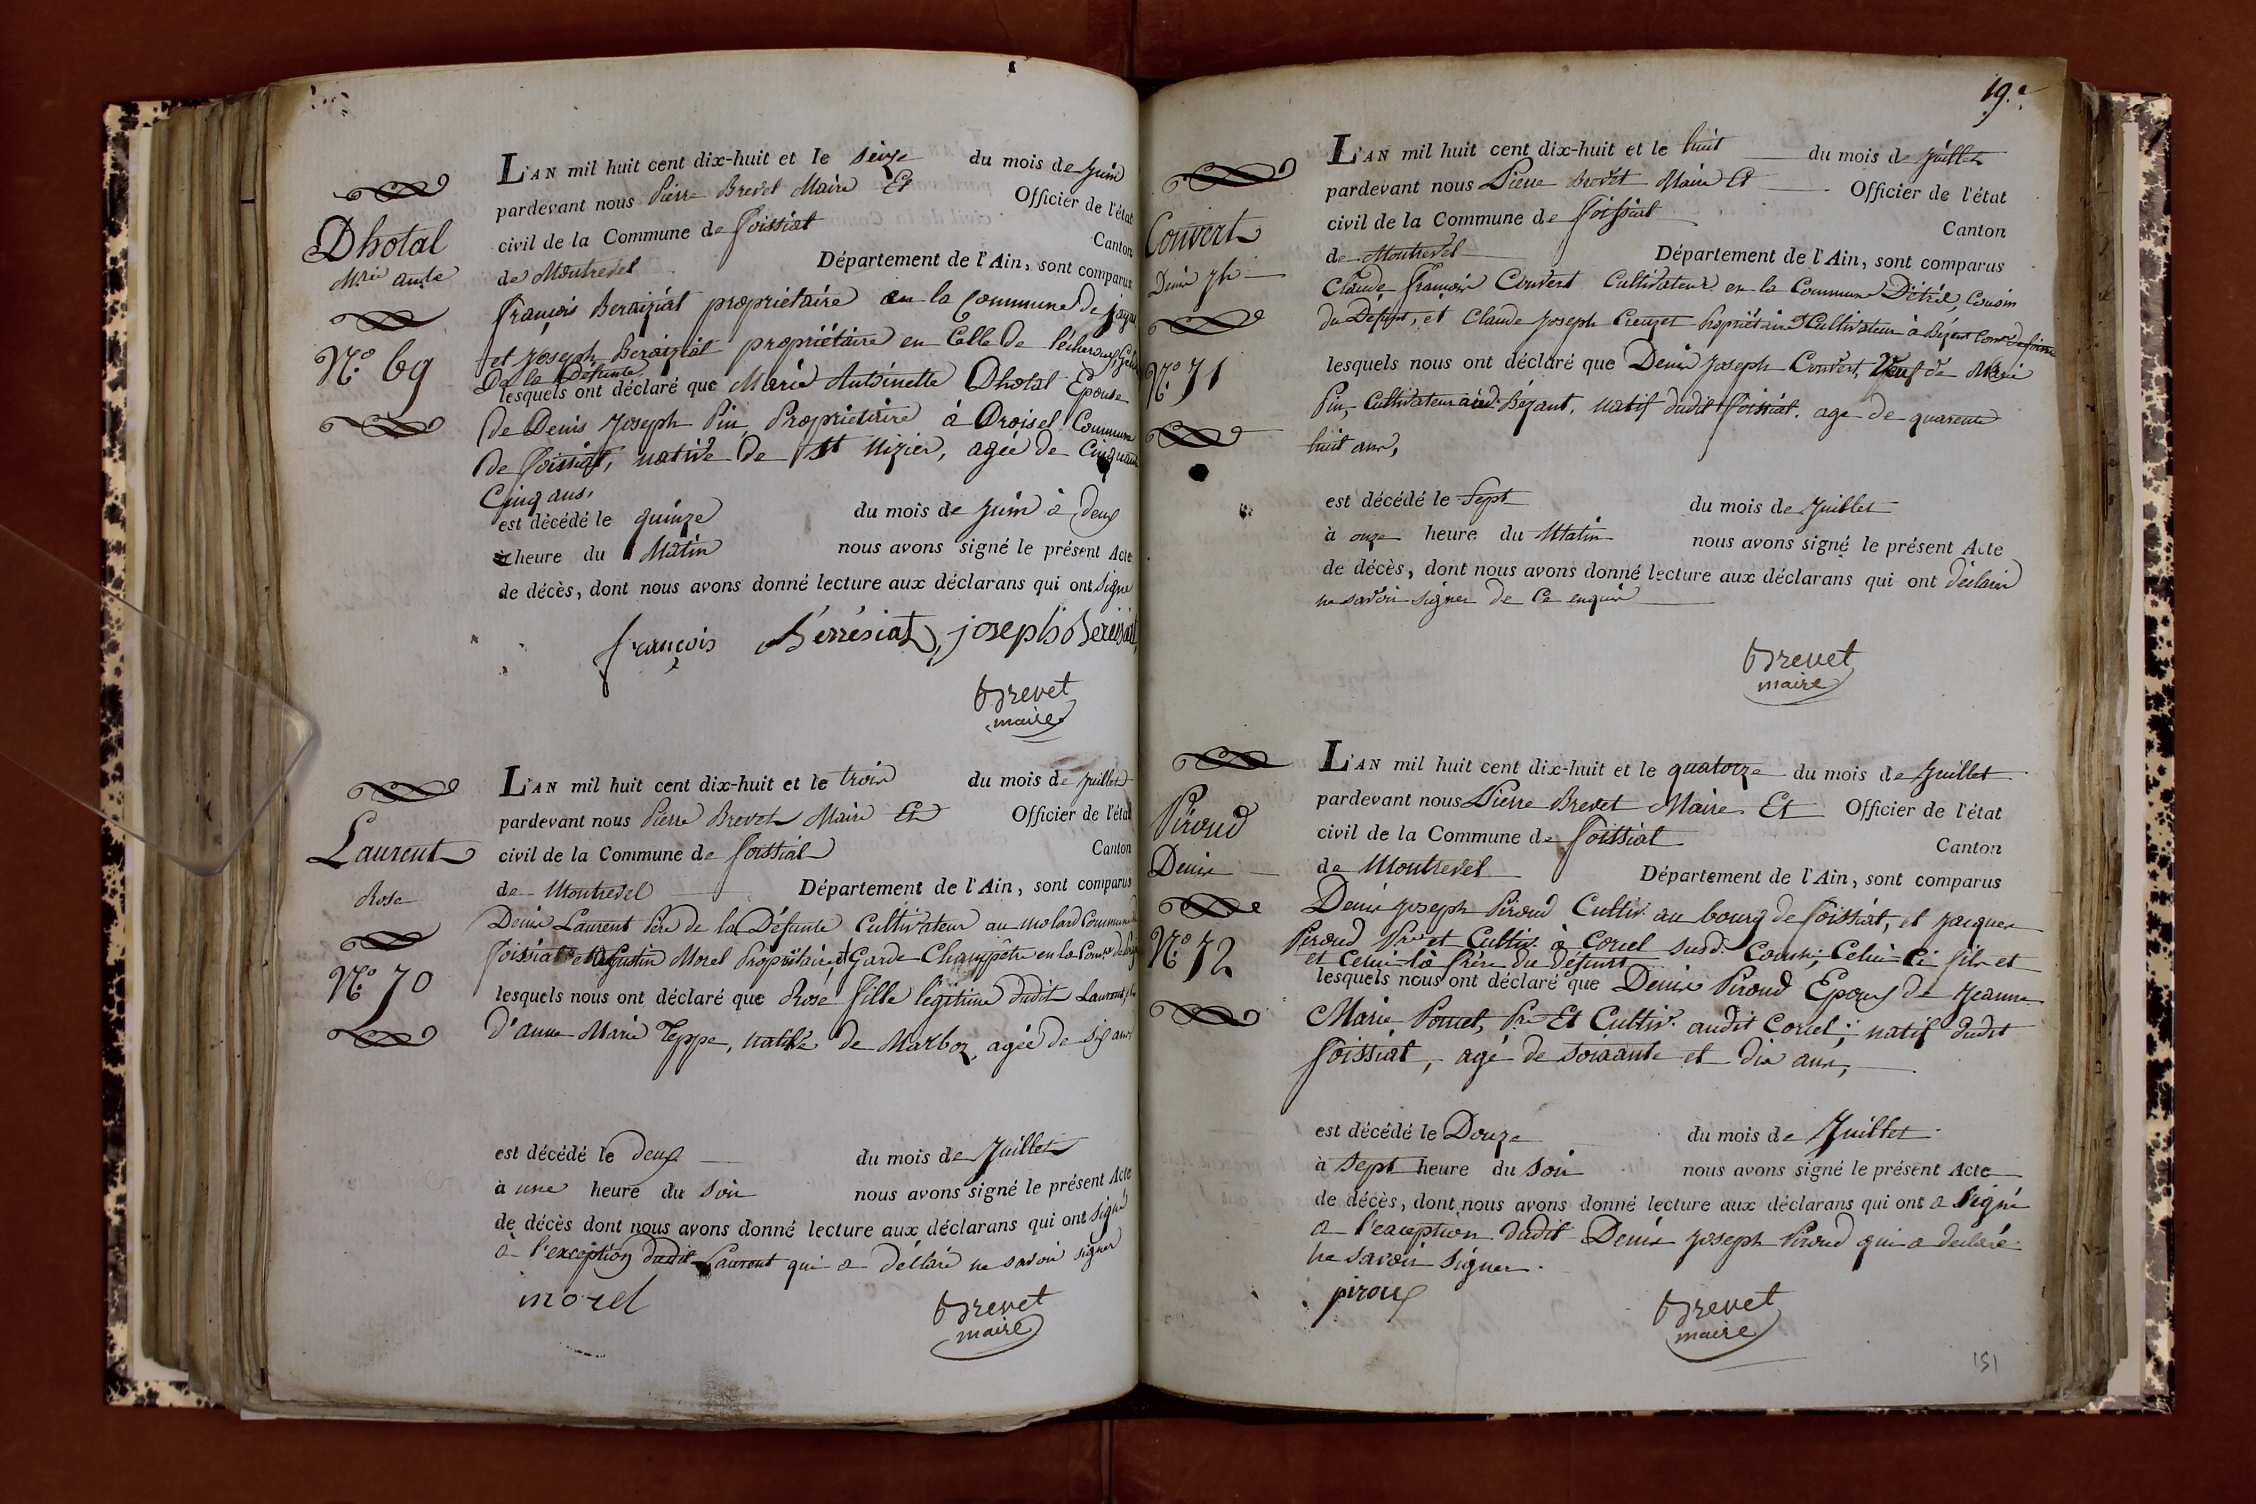 Dhotal
Mrie antte
N.° 69
L'AN mil huit cent dix-huit et le seize du mois de juin
pardevant nous Pierre Brevet Maire Et Officier de l'état
civil de la Commune de foissiat Canton
de Montrevel Département de l'Ain, sont comparus
françois Beraiziat propriétaire en la Commune de jaya
et joseph Beraiziat propriétaire en Celle de
De la Défunte
lesquels ont déclaré que Marie Antoinette Dhotal Epouse
de Denis joseph Pin Propriétaire à Droisel Commune
de foissiat, native de St Nizier, agée de Cinquante
Cinq ans,
est décédé le quinze du mois de juin à deux
heure du Matin nous avons signé le présent Acte
de décès, dont nous avons donné lecture aux déclarans qui ont signé
françois Bérrésiat, joseph Béreisiat
Brevet
maire
Laurent
Rose
N.° 70
L'AN mil huit cent dix-huit et le trois du mois de juillet
pardevant nous Pierre Brevet Maire Et Officier de l'état
civil de la Commune de foissiat Canton
de Montrevel Département de l'Ain, sont comparus
Denis Laurent Père de la Défunte Cultivateur au molard Commune
foissiat et Agustin Morel Propriétaire et Garde Champêtre en la Com.e de
lesquels nous ont déclaré que Rose fille légitime dudit Laurent, et
d'anne Marie Teppe, native de Marboz, agée de six ans
est décédé le deux du mois de juillet
à une heure du soir nous avons signé le présent Acte
de décès dont nous avons donné lecture aux déclarans qui ont signé
à l'exception dudit Laurent qui a déclaré ne savoir signer
morel
Brevet
maire
19.e
Convert
Denis jph
N.° 71
L'AN mil huit cent dix-huit et le huit du mois de juillet
pardevant nous Pierre Brevet Maire Et Officier de l'état
civil de la Commune de foissiat Canton
de Montrevel Département de l'Ain, sont comparus
Claude françois Convert Cultivateur en la Commune D'étréz, Cousin
du Défunt, et Claude joseph Creuzet Propriétaire et Cultivateur à Bézant Com.e de foissiat
lesquels nous ont déclaré que Denis joseph Convert, Veuf de Marie
Pin, Cultivateur aud. Bézant, natif dudit foissiat, agé de quarente
huit ans,
est décédé le Sept du mois de juillet
à onze heure du Matin nous avons signé le présent Acte
de décès, dont nous avons donné lecture aux déclarans qui ont déclaré
ne savoir signer de Ce enquis
Brevet
maire
Piroud
Denis
N.° 72
L'AN mil huit cent dix-huit et le quatorze du mois de juillet
pardevant nous Pierre Brevet Maire Et Officier de l'état
civil de la Commune de foissiat Canton
de Montrevel Département de l'Ain, sont comparus
Denis joseph Piroud Cultiv. au bourg de foissiat, et jacques
Piroud Pre et Cultiv. à Coruel susd. Comne, Celui-Ci fils et
et Celui-là frère du défunt
lesquels nous ont déclaré que Denis Piroud Epoux de jeanne
Marie Poncet, Pre Et Cultiv. audit Coruel, natif dudit
foissiat, agé de soixante et dix ans,
est décédé le Douze du mois de juillet
à sept heure du soir nous avons signé le présent Acte
de décès, dont nous avons donné lecture aux déclarans qui ont a signé
a l'exception dudit Denis joseph Piroud qui a déclaré
ne savoir signer.
piroux
Brevet
maire
151